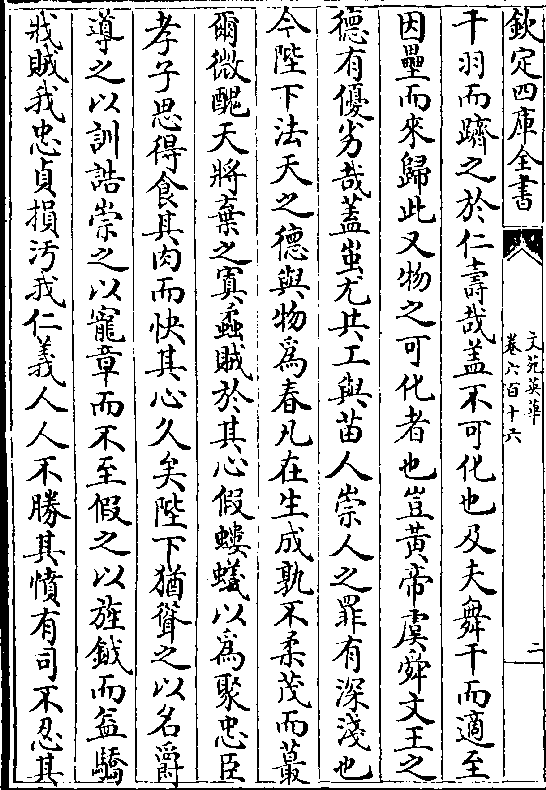 欽定四庫全書
文苑英華
卷六百十六
二
干羽而躋之於仁壽哉蓋不可化也及夫舞干而適至
因壘而來歸此又物之可化者也豈黃帝虞舜文王之
德有優劣哉蓋蚩尤共工與苗人崇人之罪有深淺也
今陛下法天之德與物為春凡在生成孰不柔茂而蕞
爾微醜天將棄之寘蟊賊於其心假螻蟻以為聚忠臣
孝子思得食其肉而快其心久矣陛下猶聳之以名爵
導之以訓誥崇之以寵章而不至假之以旌鉞而益驕
戕賊我忠貞損汚我仁義人人不勝其憤有司不忍其